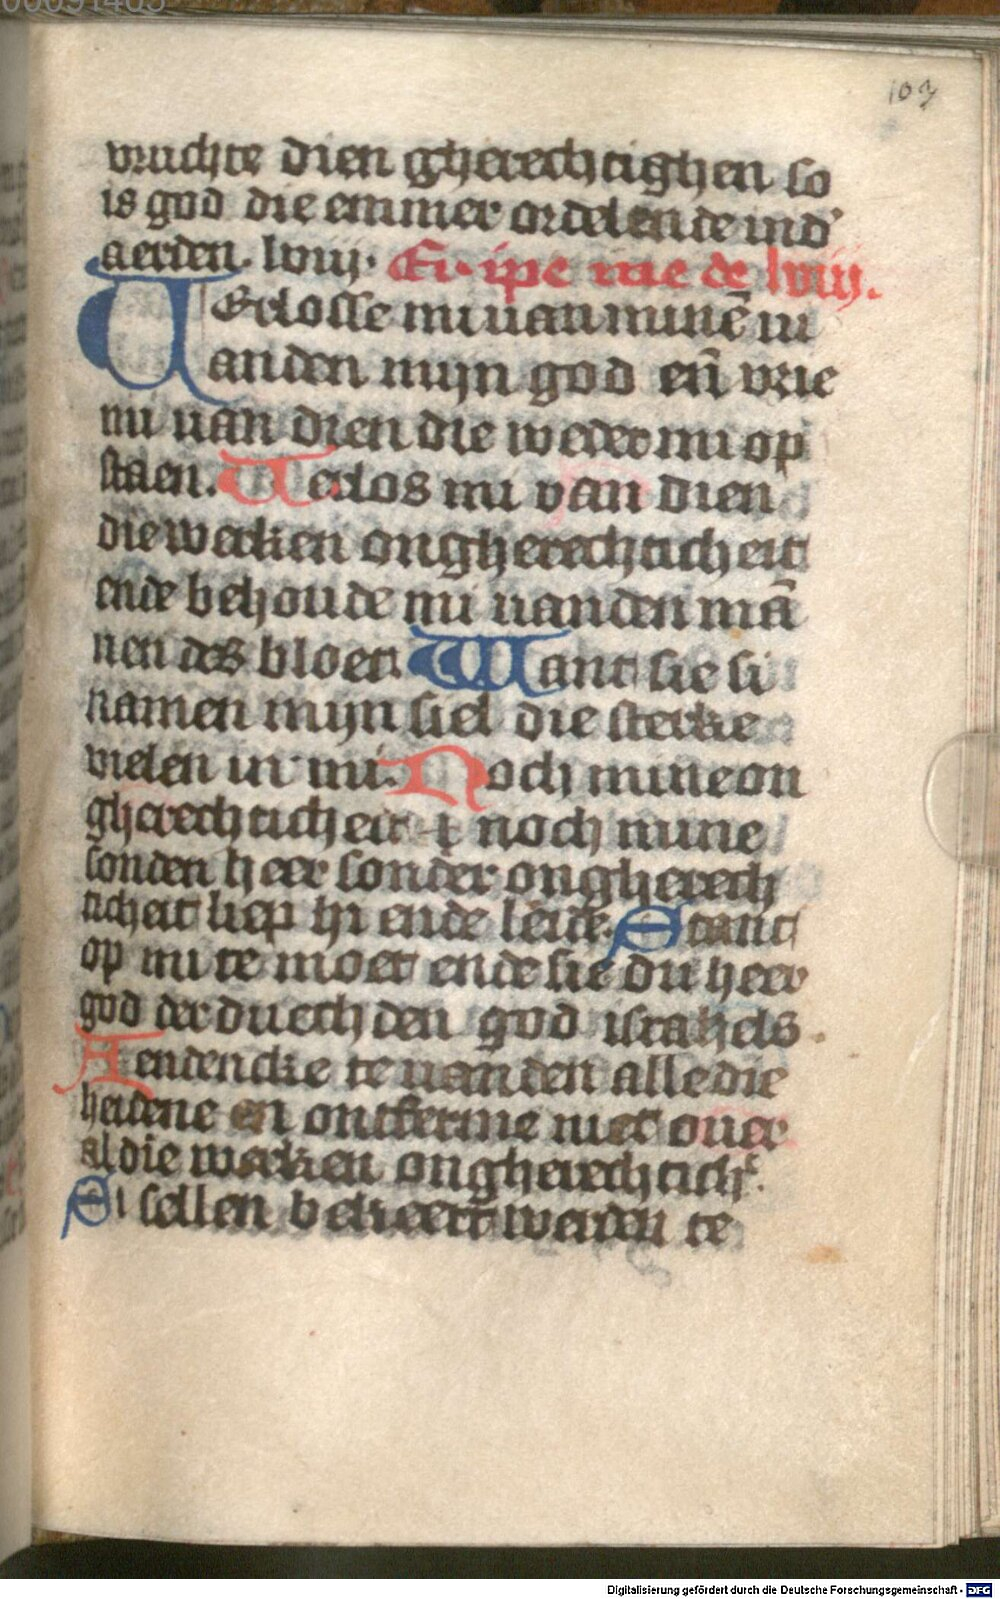 103
vruchte dien gherechtighen so
is god die emmer ordelende ind'
aerden. lviij. Eripe me de lviij.
VErlosse mi uan minē ui
anden mijn god eñ vrie
mi uan dien die weder mi op
staen. Verlos mi van dien
die werken ongherechticheit
ende behoude mi uanden mā
nen des bloets Want sie si
namen mijn siel die sterke
vielen in mi. Noch mine on
gherechticheit noch mine
sonden heer sonder ongherech
ticheit liep hi ende leide. Stant
op mi te moet ende sie du heer
god der duecchden god israhels.
Aendencke te uanden alle die
heidene en ontferme niet ouer
al die werken ongherechtich^t.
Si sellen bekeert werden te
Digitalisierung gefördert durch die Deutsche Forschungsgemeinschaft - DFG